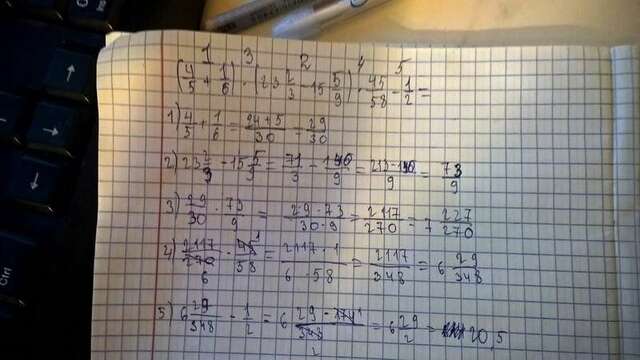 1 3 2 4 5
(4/5 + 1/6) · (23 2/3 - 15 5/9) · 45/58 - 1/2 =
1) 4/5 + 1/6 = 24+5/30 = 29/30
2) 23 2/3 - 15 5/9 = 71/3 - 140/9 = 213-140/9 = 73/9
3) 29/30 · 73/9 = 29·73/30·9 = 2117/270 = 7 227/270
4) 2117/270 6 · 45 1/58 = 2117·1/6·58 = 2117/348 = 6 29/348
5) 6 29/348 - 1/2 = 6 29-174/348 2 = 6 29/2 = 20,5
Ctrl